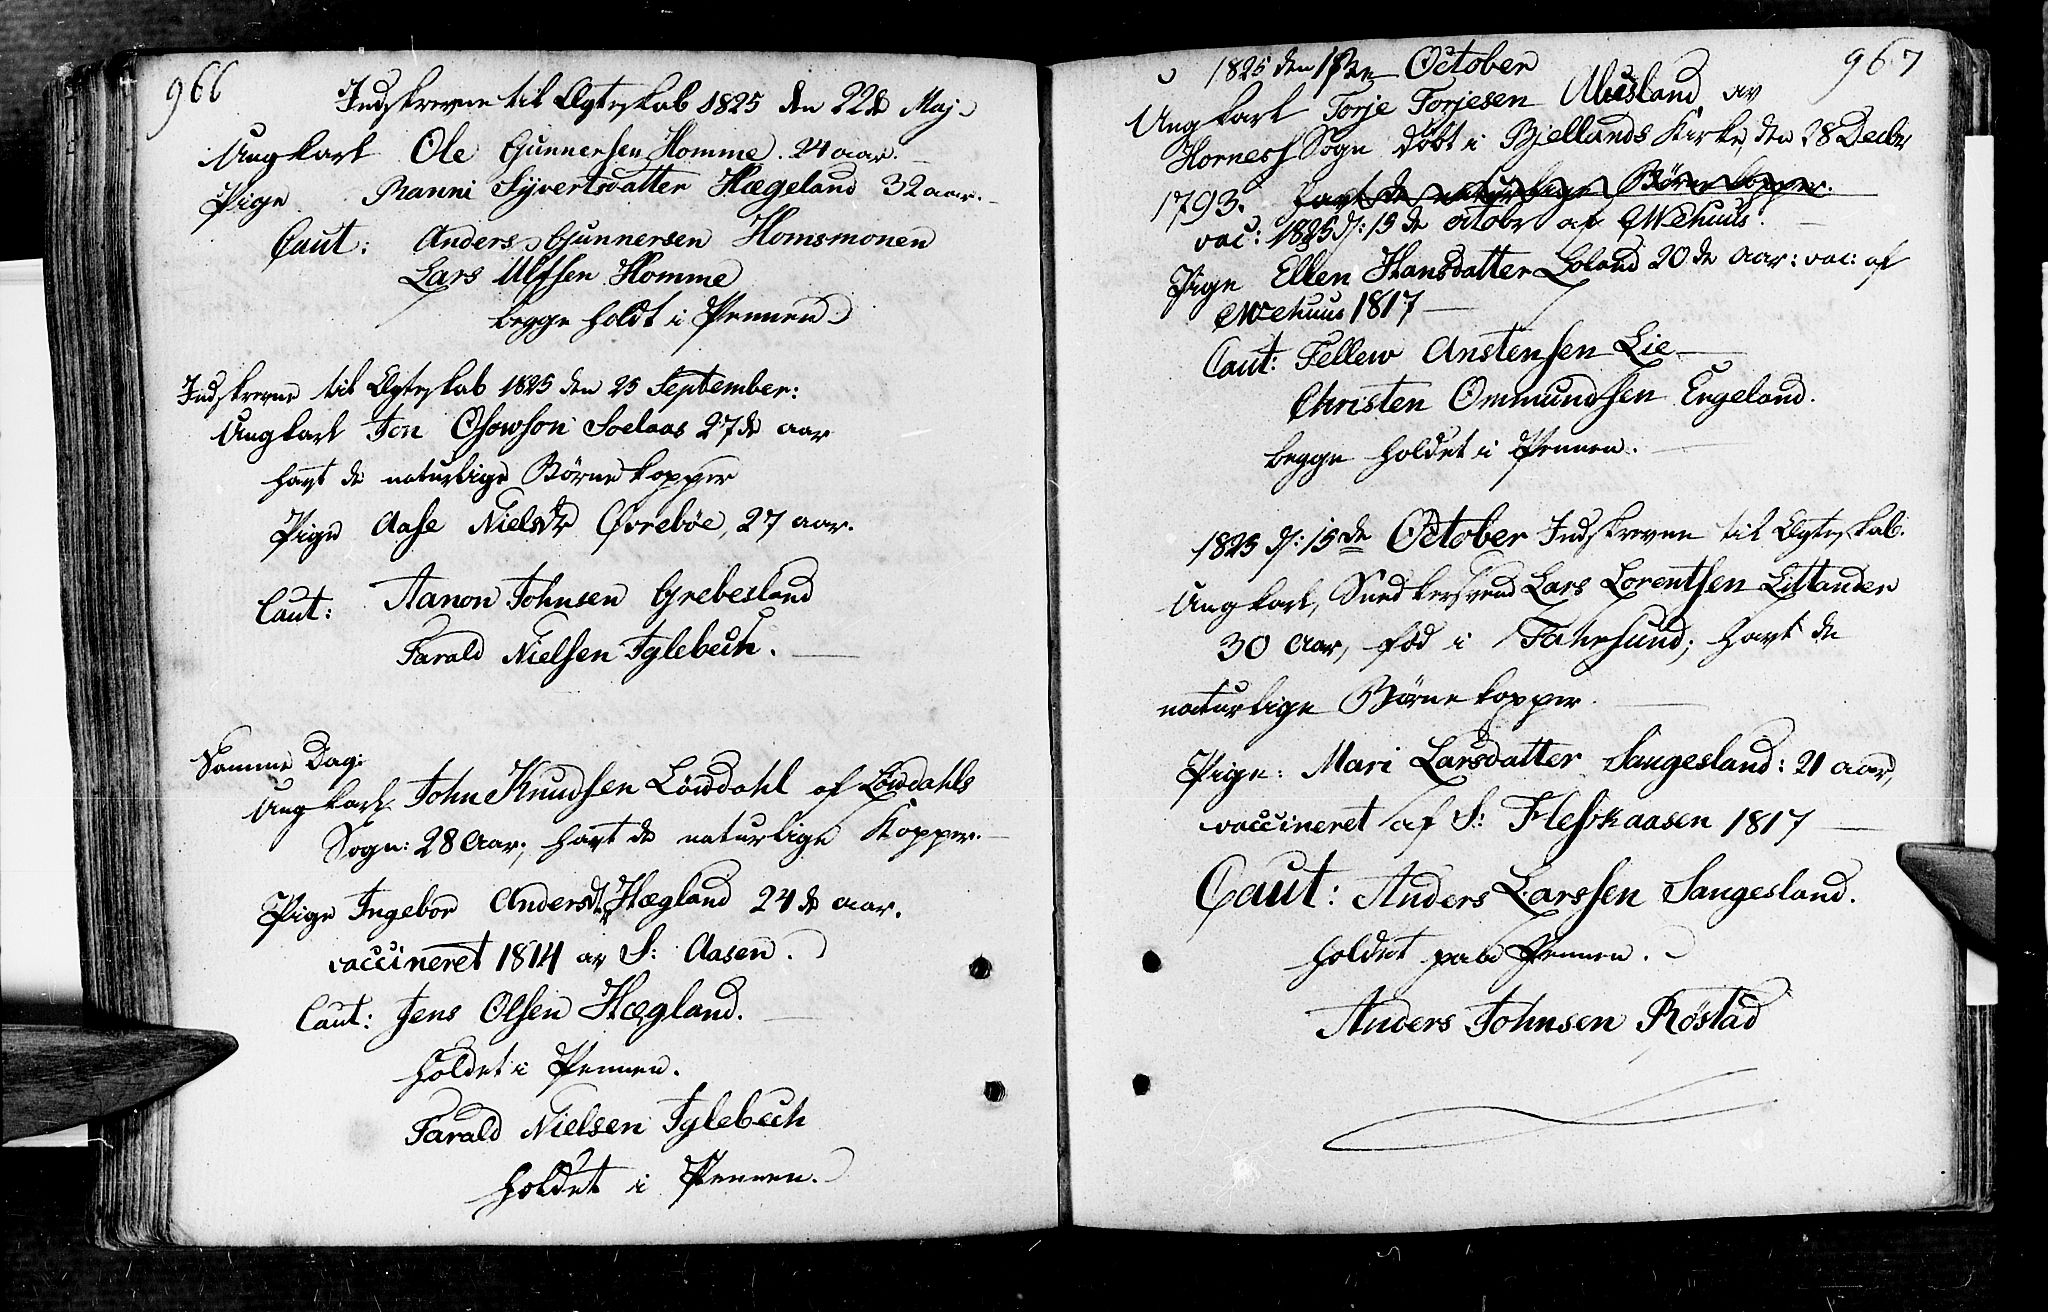 966
Indskrevne til Ægteskab 1825 den 22de Maj.
Ungkarl Ole Gunnersen Homme. 24 aar.
Pige Ranni Syvertsdatter Hægeland 32 aar.
Caut: Anders Gunnersen Homsmonen
Lars Ulfsen Homme
begge holdt i Pennen
Indskrevne til Ægteskab 1825 den 25 September:
Ungkarl Jon Soelaas 27de aar
havt de naturlige Børnekopper
Pige Aase Nielsdtr Øvrebøe, 27 aar.
Caut: Aanon Johnsen Grebesland
Tarald Nielsen Iglebech.
Samme Dag:
Ungkarl. John Knudsen Löwdahl af Löwdahls
Sogn: 28 Aar; havt de naturlige Kopper.
Pige Ingebor Andersdtr Hægland 24de aar.
vaccineret 1814 av S: Aasen.
Caut: Jens Olsen Hægland.
holdet i Pennen.
Tarald Nielsen Iglebech
holdet i Pennen.
967
1825 den October
Ungkarl Torje Torjesen Abusland, av
Horness Sogn døbt i Bjellands Kirke, den 28 Decbr
1793. havt de naturlige Børnekopper.
vac: 1825 d: 15de octobr af
Pige Ellen Hansdatter Loland 20de Aar: vac: af
1817
Caut: Tellew Anstensen Lie
Christen Ommundsen Engeland.
begge holdet i Pennen.
1825 d: 15de October Indskrevne til Ægteskab.
Ungkarl, Snedkersvend Lars Lorentsen Littander
30 Aar, fød i Farhsund; havt de
naturlige Børnekopper.
Pige: Mari Larsdatter Sangesland: 21 aar,
vaccineret af S: Fleskaasen 1817
Caut: Anders Larssen Sangesland.
holdet paa Pennen.
Anders Johnsen Røstad